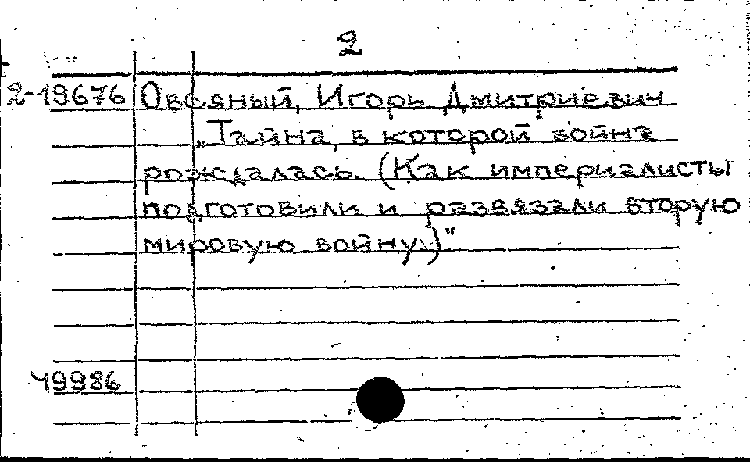 2
2-19676 Овсяный, Игорь Дмитриевич
„Тайна, в которой война
рождалась. (Как империалисты
подготовили и развязали вторую
мировую войну.)"
49986